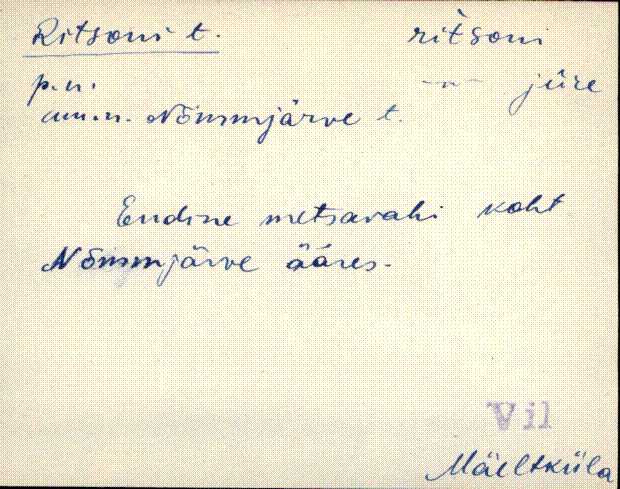 Ritsoni t. ritsoni
p.n. —"— jüre
am.n. Nõmmjärve t.
Endine metsavahi koht
Nõmmjärve ääres.
Vil
Mäeltküla